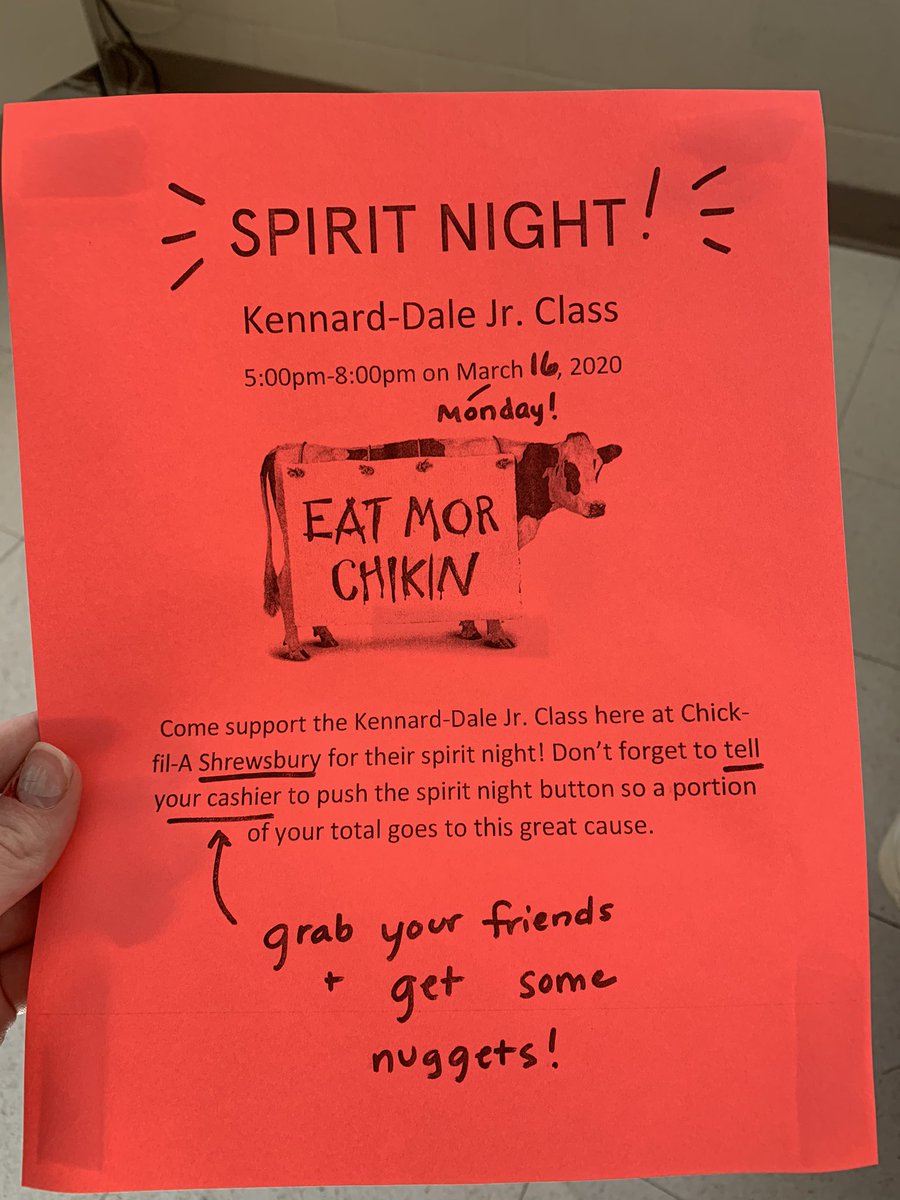 SPIRIT NIGHT!
Kennard-Dale Jr. Class
5:00pm-8:00pm on March 16, 2020
Monday!
EAT MOR
CHIKIN
Come support the Kennard-Dale Jr. Class here at Chick-
fil-A Shrewsbury for their spirit night! Don't forget to tell
your cashier to push the spirit night button so a portion
of your total goes to this great cause.
grab your friends
+ get some
nuggets!